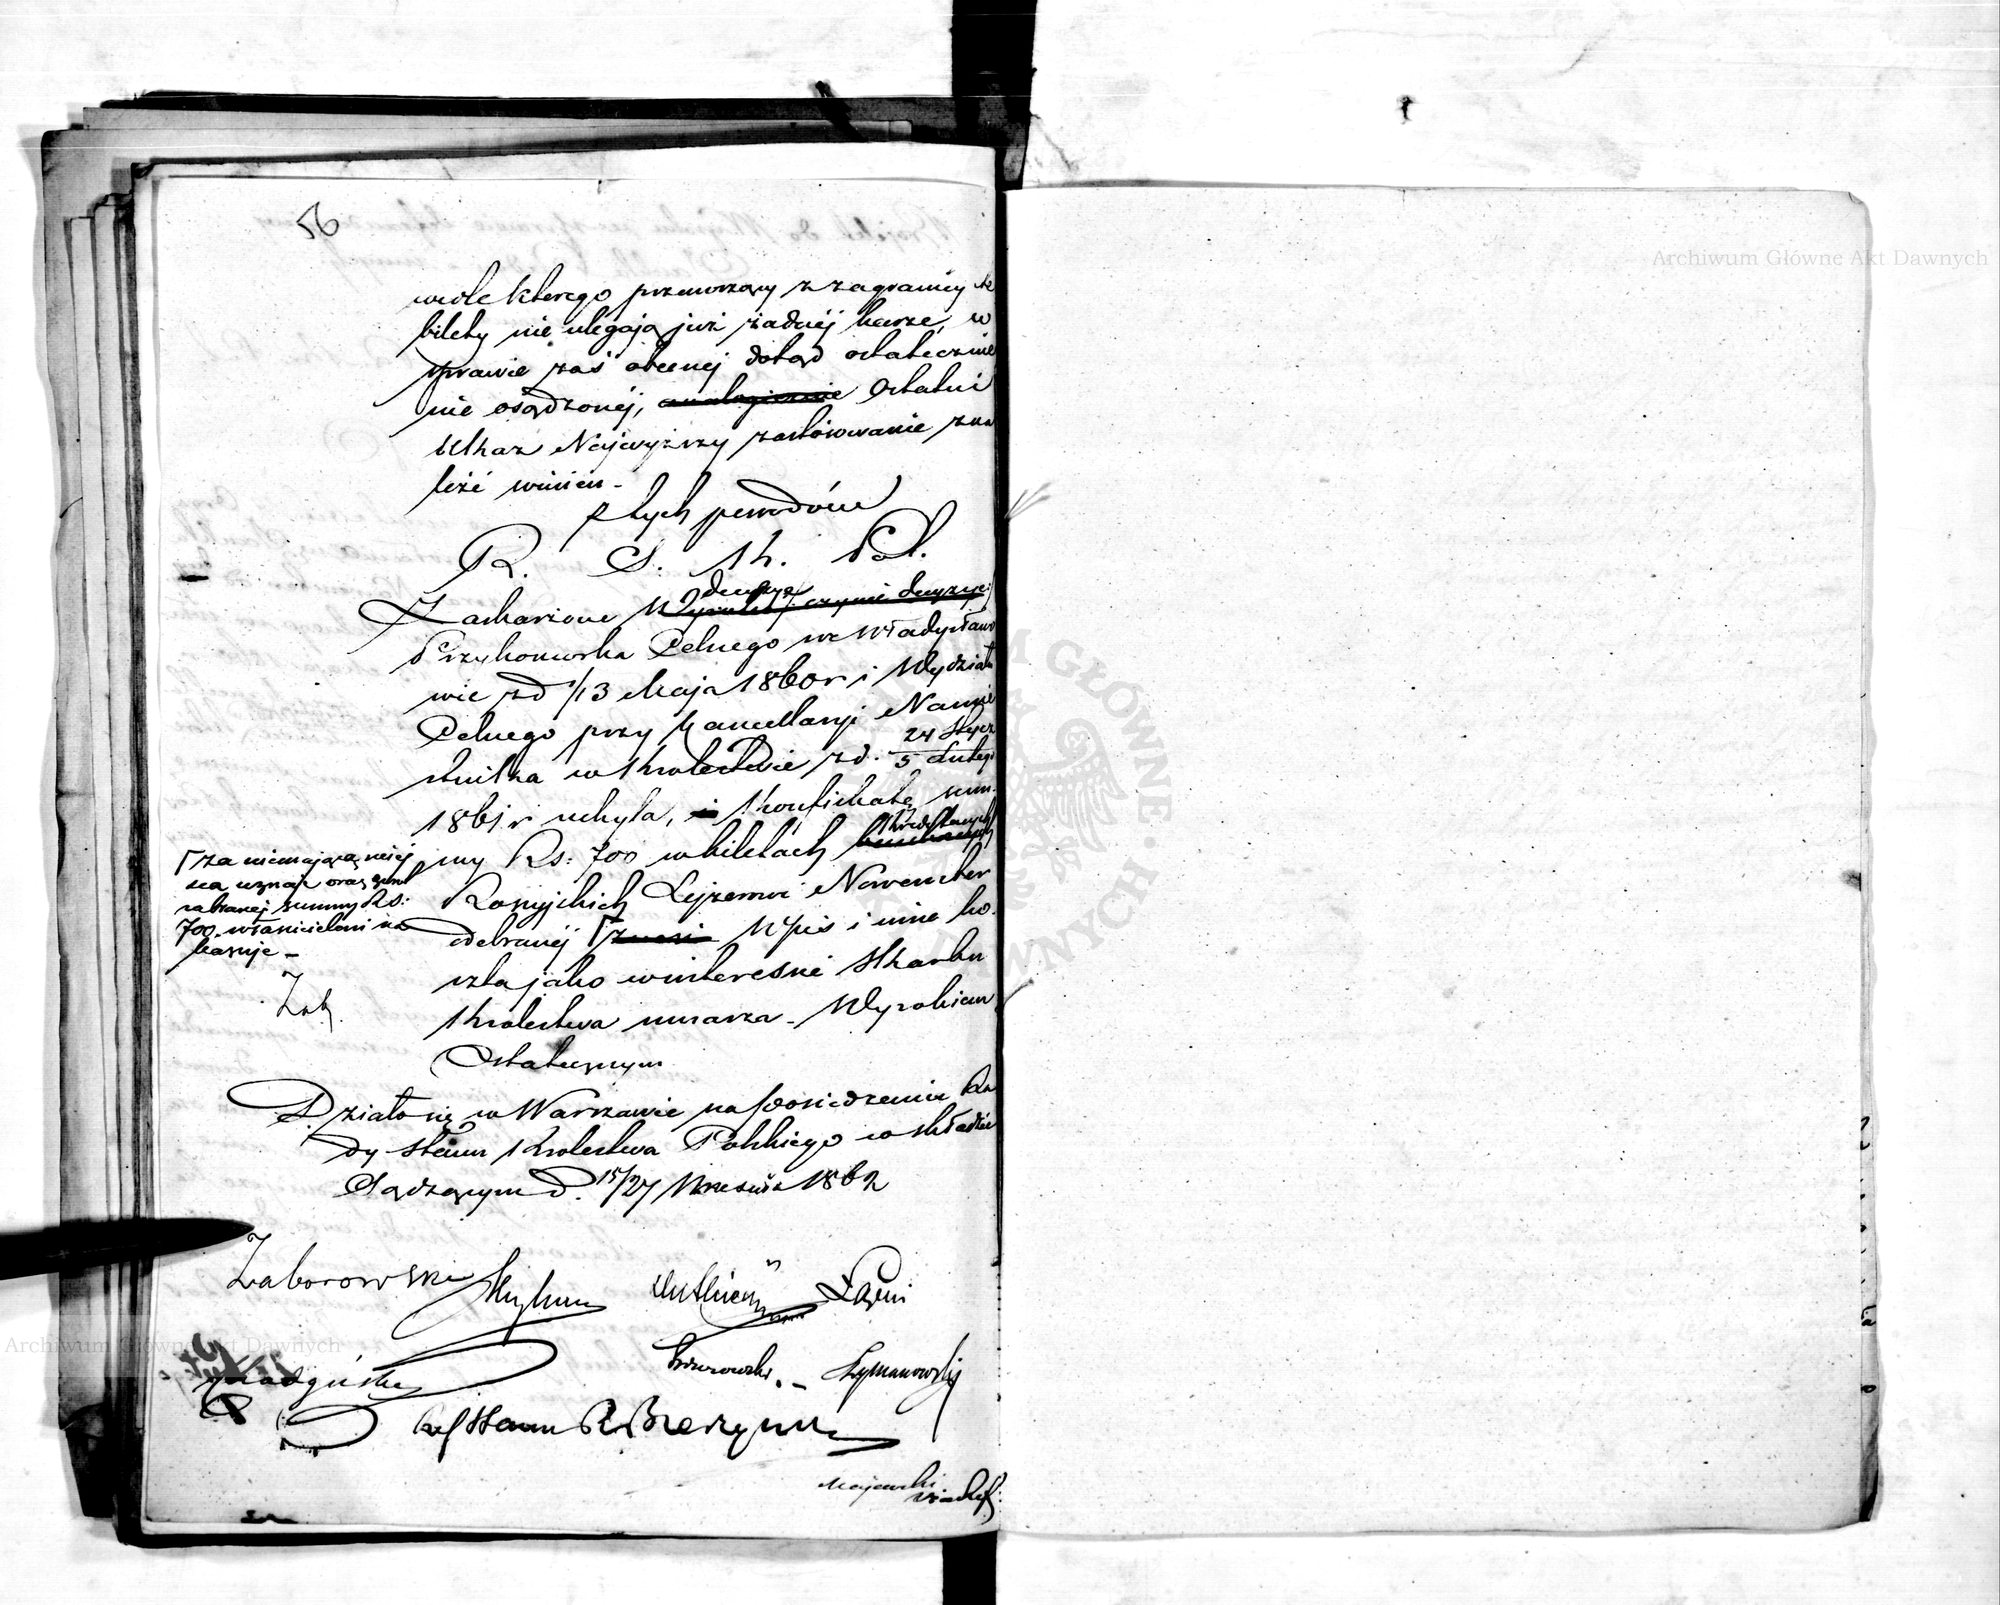 56
wedle którego przewożący z zagranicy te
bilety nie ulegają już żadnéj karze, w
sprawie zaś obecnej dotąd ostatecznie
nie osądzonéj, analogicznie Ostatni
Ukaz Najwyższy zastósowanie zna
leźć winien -
z tych powodów
R. S. K. Pol.
decyzye
Zaskarżone czyni decyzye
Przykomorka Celnego we Władysławo
wie z d 1/13 Maja 1860 r i Wydziału
Celnego przy Kancellaryi Namie
stnika w Królestwie z d. 24 Stycz
5 Lutego
1861 r uchyla, i Konfiskatę sum
kredytowych
my Rs: 700 w biletach
Rossyjskich Lejzerowi Nowember
odebranéj znosi Wpis i inne ko
szta jako w interesie Skarbu
Królestwa umarza - Wyrokiem
Ostatecznym
za niemającą miej
sca uznaje oraz zwrot
zabranéj summy Rs:
700 właścicielowi na
kazuje -
Zab.
Działo się w Warszawie na posiedzeniu Ra
dy Stanu Królestwa Polskiego w składzie
Sądzącym d. 15/27 Września 1862
Zaborowski
Łaski
Szymanowski
Ref Stanu
Majewski
Archiwum Główne Akt Dawnych
Archiwum Główne Akt Dawnych